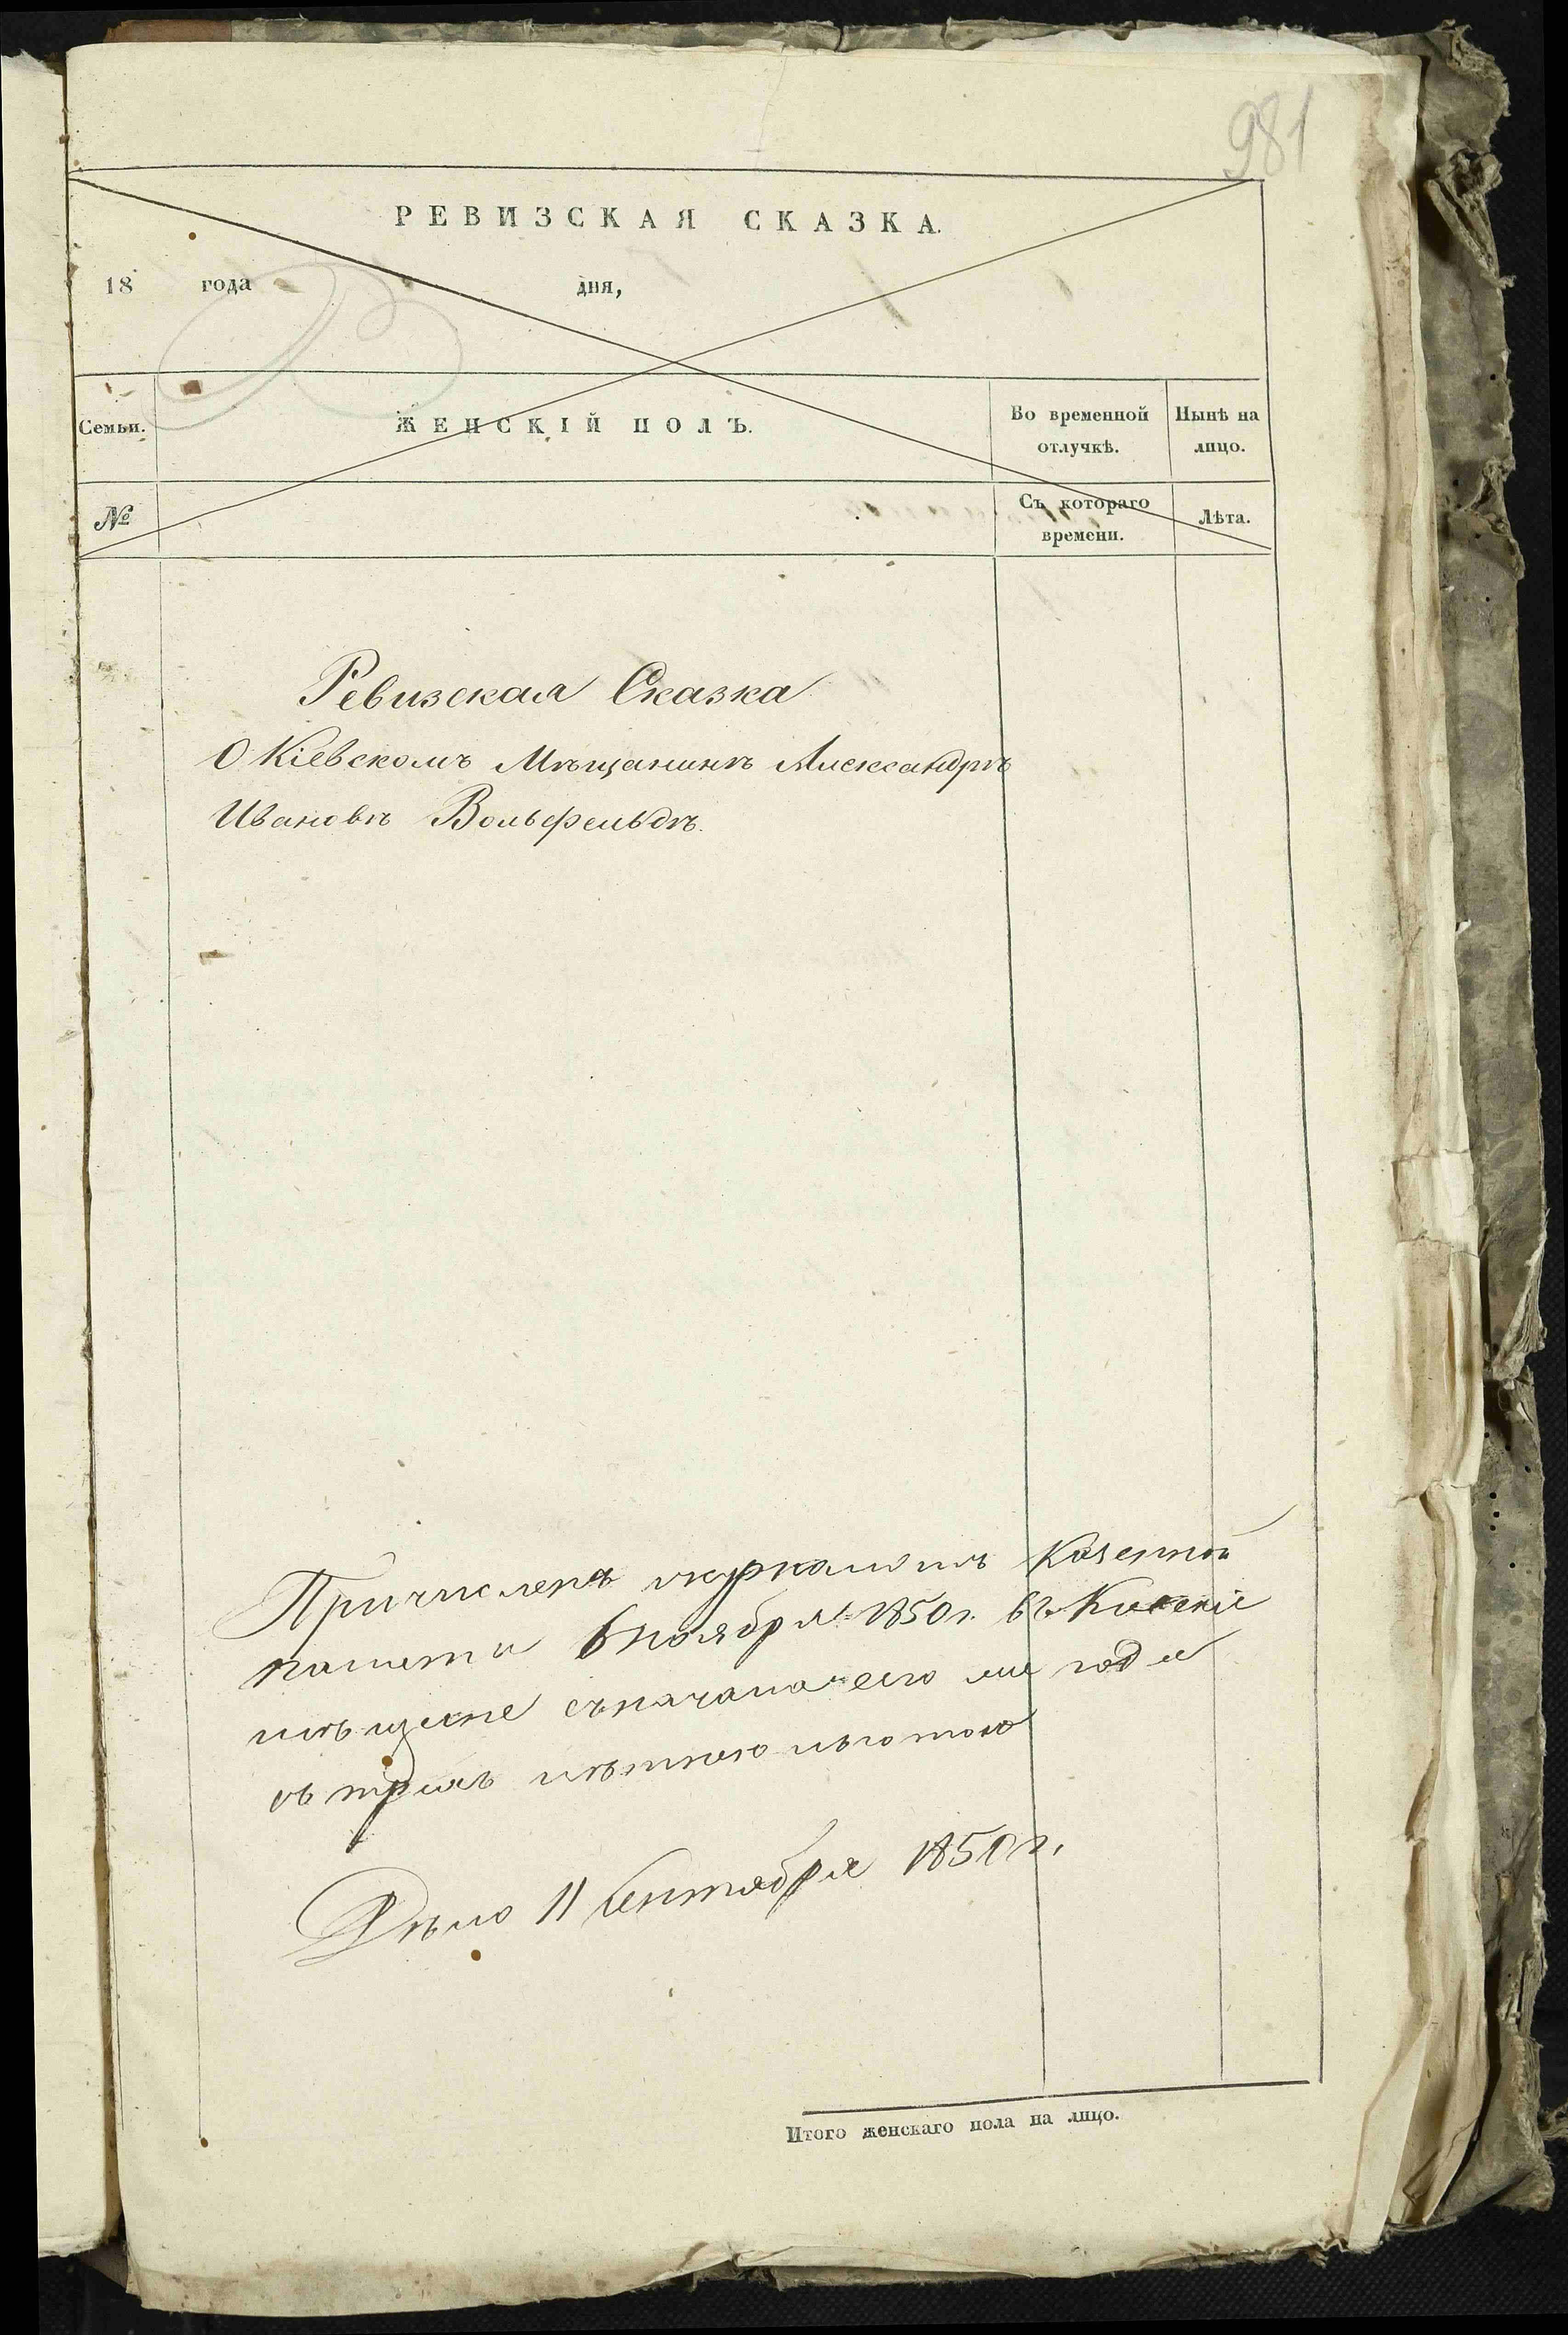 981
РЕВИЗСКАЯ СКАЗКА.
18 года дня,
Семьи. ЖЕНСКІЙ ПОЛЪ. Во временной отлучкѣ. Нынѣ на лицо.
№ Съ котораго времени. Лѣта.
Ревизская Сказка
О Кіевскомъ Мѣщанинѣ Александрѣ
Ивановѣ Вольфельдѣ.
Причисленъ журналомъ Казенной
палаты 6 ноября 1850 г. въ Кіевскіе
мѣщане съ начала года
съ трехъ лѣтнею льготою
Дѣло 11 Сентября 1850 г.
Итого женскаго пола на лицо.